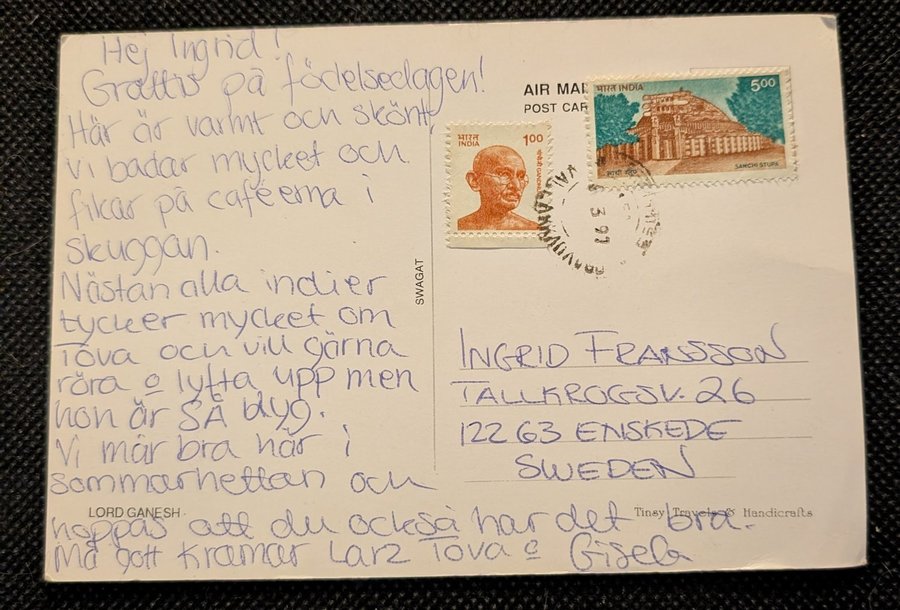 Hej Ingrid!
Grattis på födelsedagen!
Här är varmt och skönt,
vi badar mycket och
fikar på caféerna i
skuggan.
Nästan alla indier
tycker mycket om
Tova och vill gärna
röra o lyfta upp men
hon är SÅ blyg.
Vi mår bra här i
sommarhettan och
hoppas att du också har det bra.
Må gott Kramar Larz Tova o Gisela
LORD GANESH
SWAGAT
AIR MAI
POST CAR
भारत
INDIA
1.00
भारत INDIA
5.00
SANCHI STUPA
3 97
INGRID FRANSSON
TALLKROGSV. 26
122 63 ENSKEDE
SWEDEN
Tinsy Travels & Handicrafts